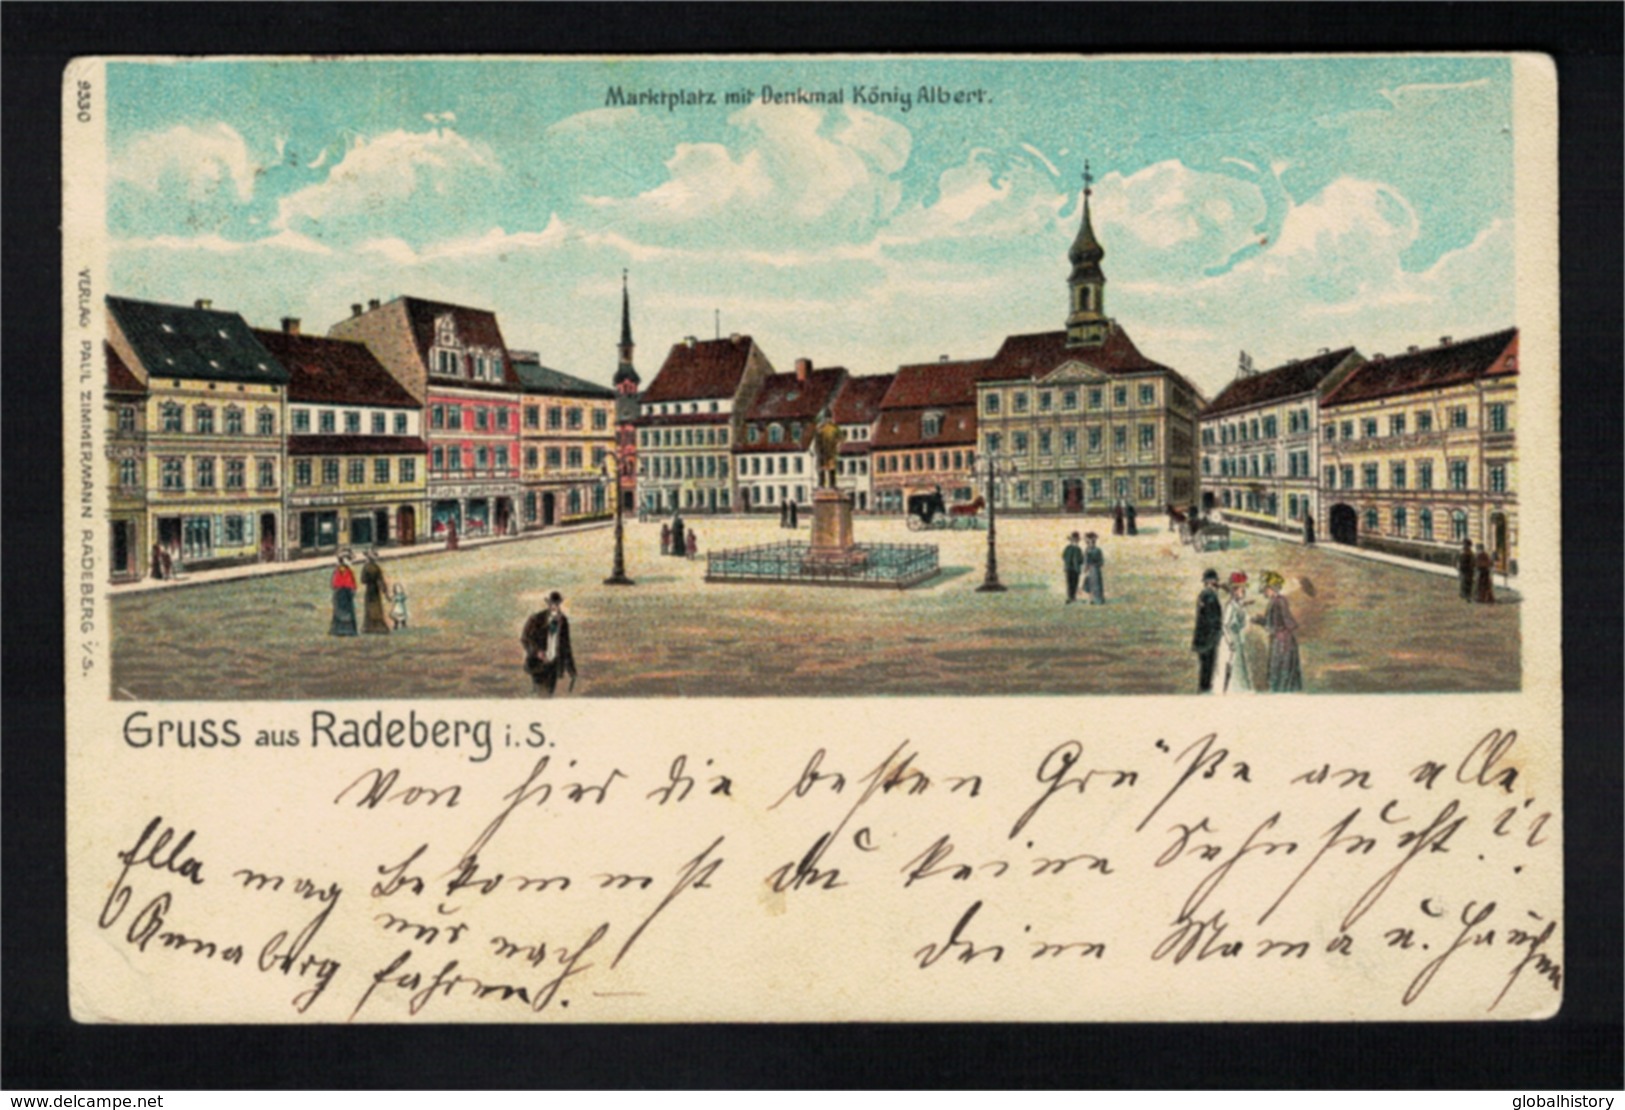 Marktplatz mit Denkmal König Albert.
9330
VERLAG PAUL ZIMMERMANN RADEBERG i/S.
Gruss aus Radeberg i.S.
Von hier die besten Grüße an alle.
Bekommst du keine Sehnsucht!??
Deine Mama u.
Ella mag
nur nach
Annaberg fahren.
delcampe.net
globalhistory